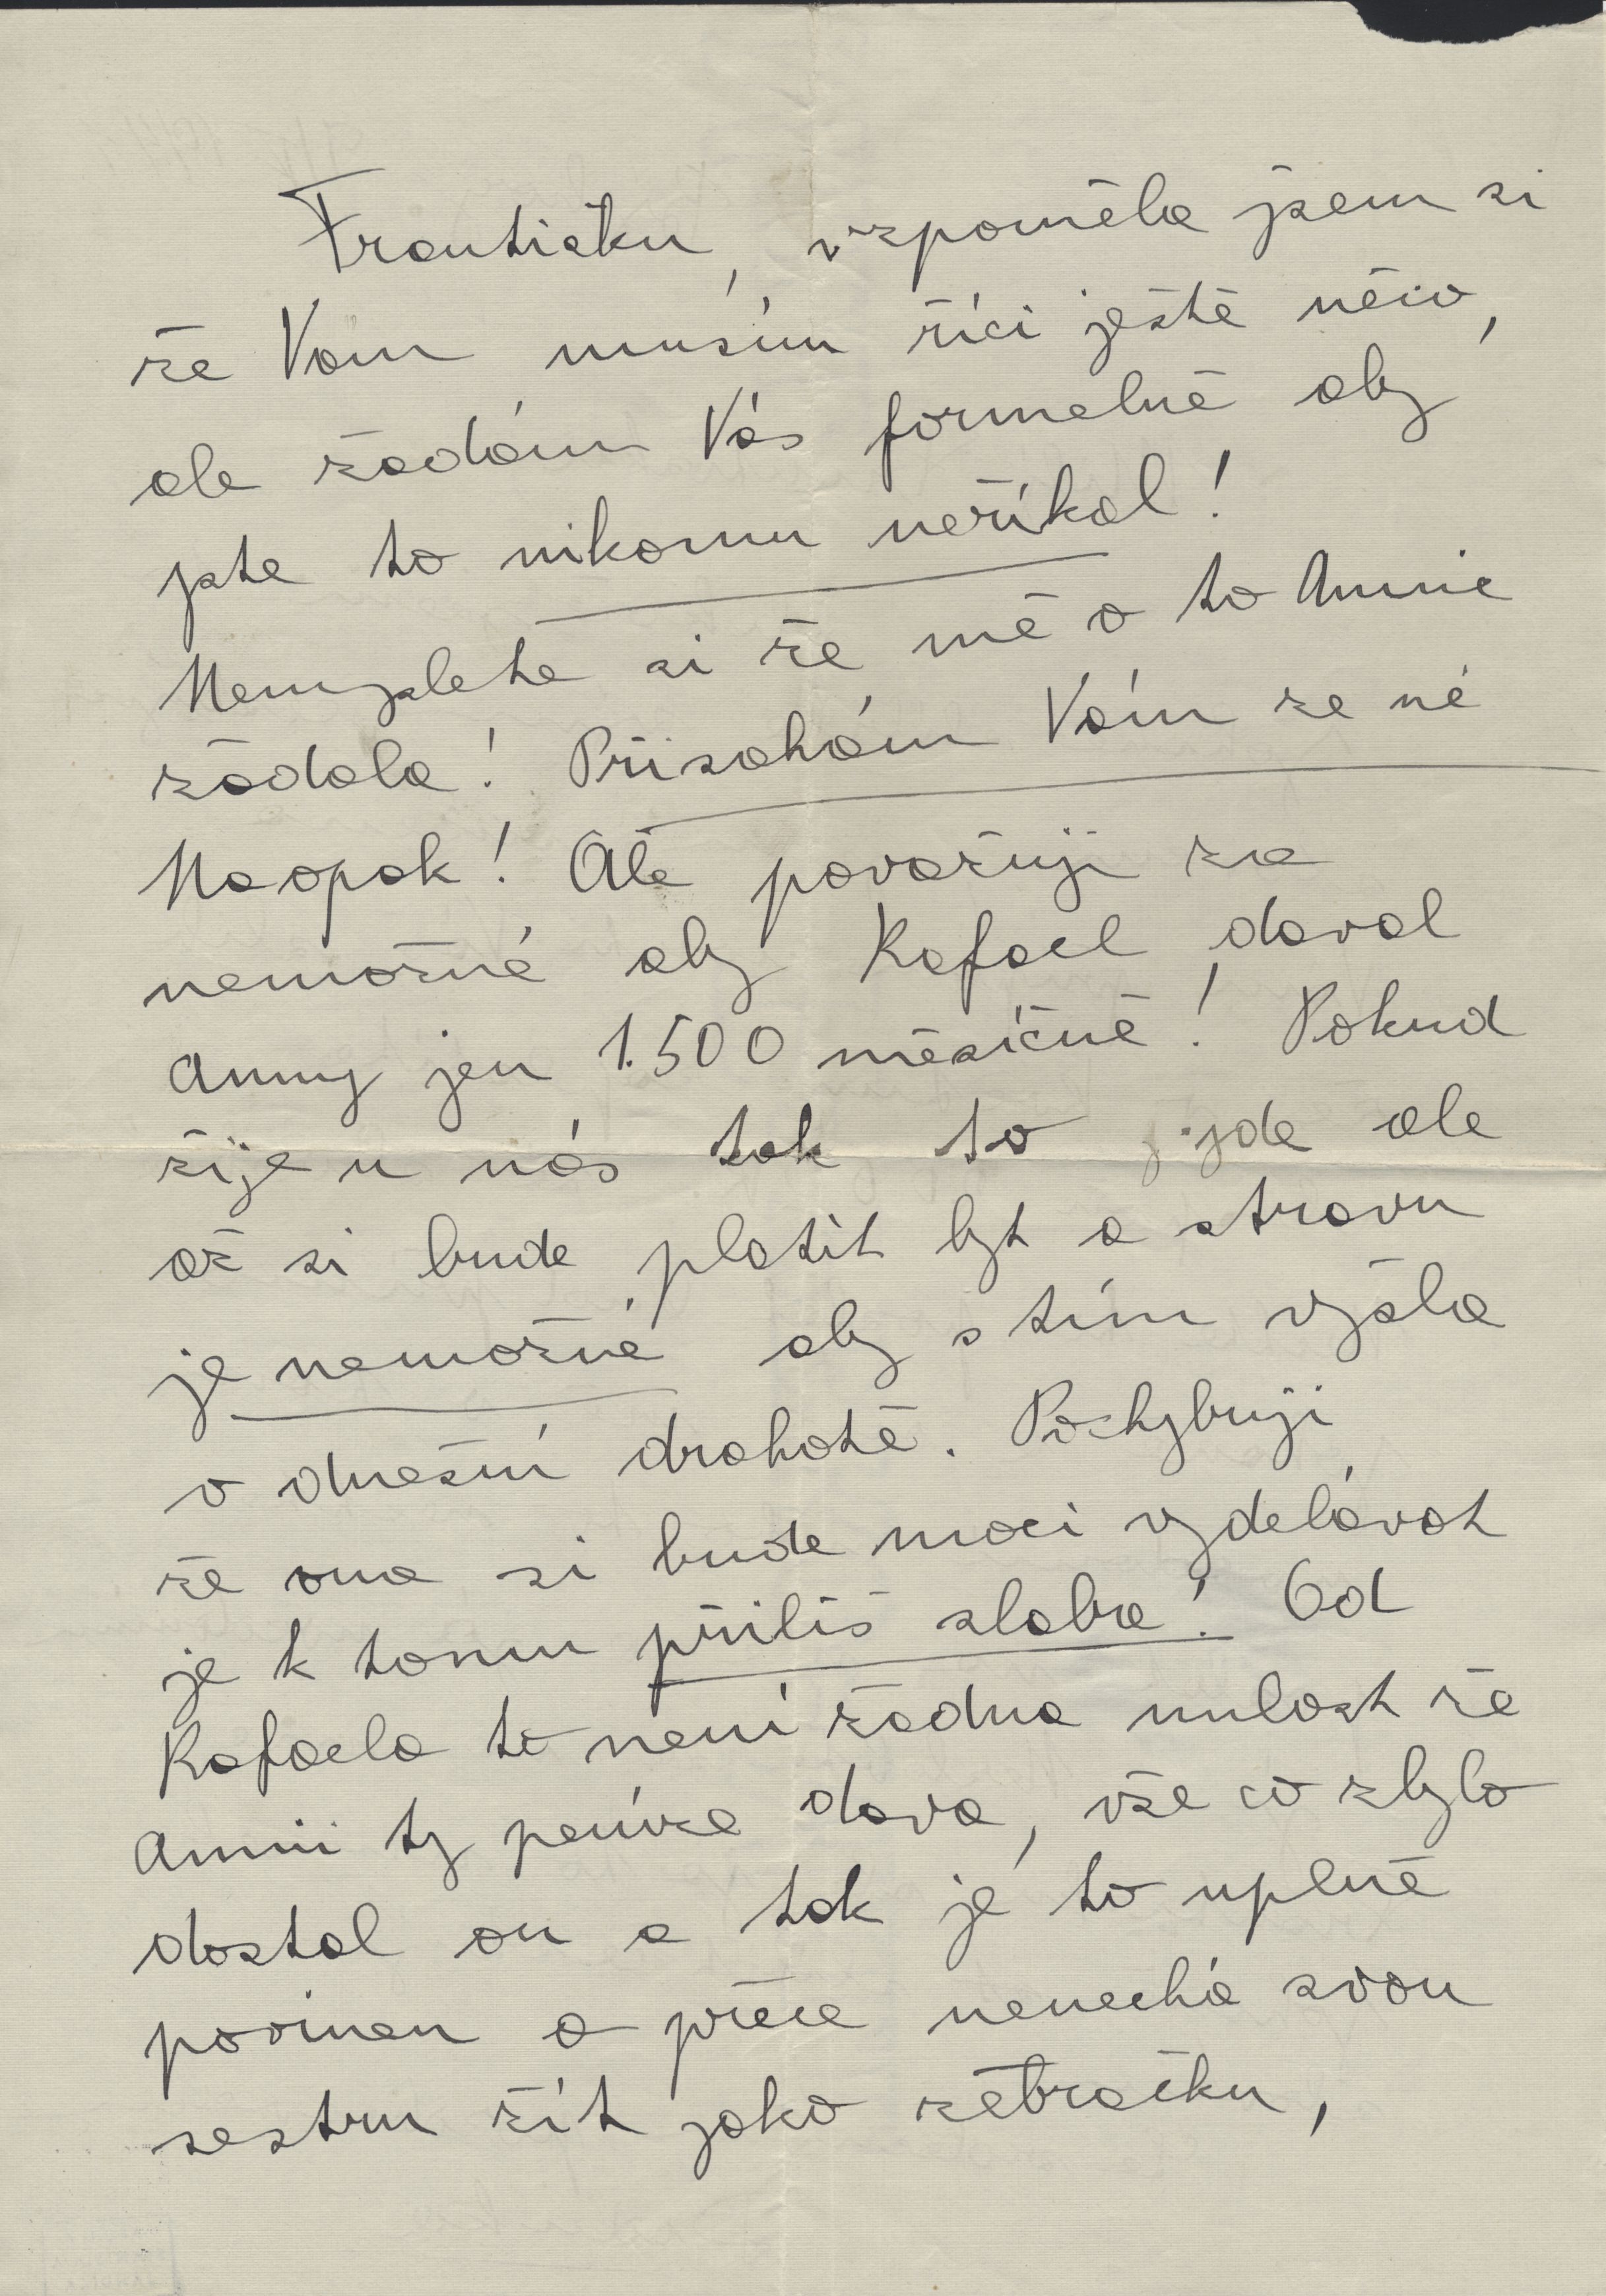 Františku, vzpoměla jsem si
že Vam musím říci ještě něco,
ale žádám Vás formelně aby
jste to nikomu neříkal!
Nemyslete si že mě o to Annie
žádala! Přisahám Vám ze né
Naopak! Ale považuji za
nemožné aby Rafael daval
Anny jen 1.500 měsíčně! Pokud
žije u nás tak to jde ale
až si bude platit byt a stravu
je nemožné aby s tím vyšla
v dnešní drahotě. Pochybuji
že ona si bude moci vydelávat
je k tomu příliš slaba! Od
Rafaela to není žadna milost že
Annii ty peníze dava, vše co zbylo
dostal on a tak je to uplně
povinen a přece nenechá svou
sestru žít jako žebračku,